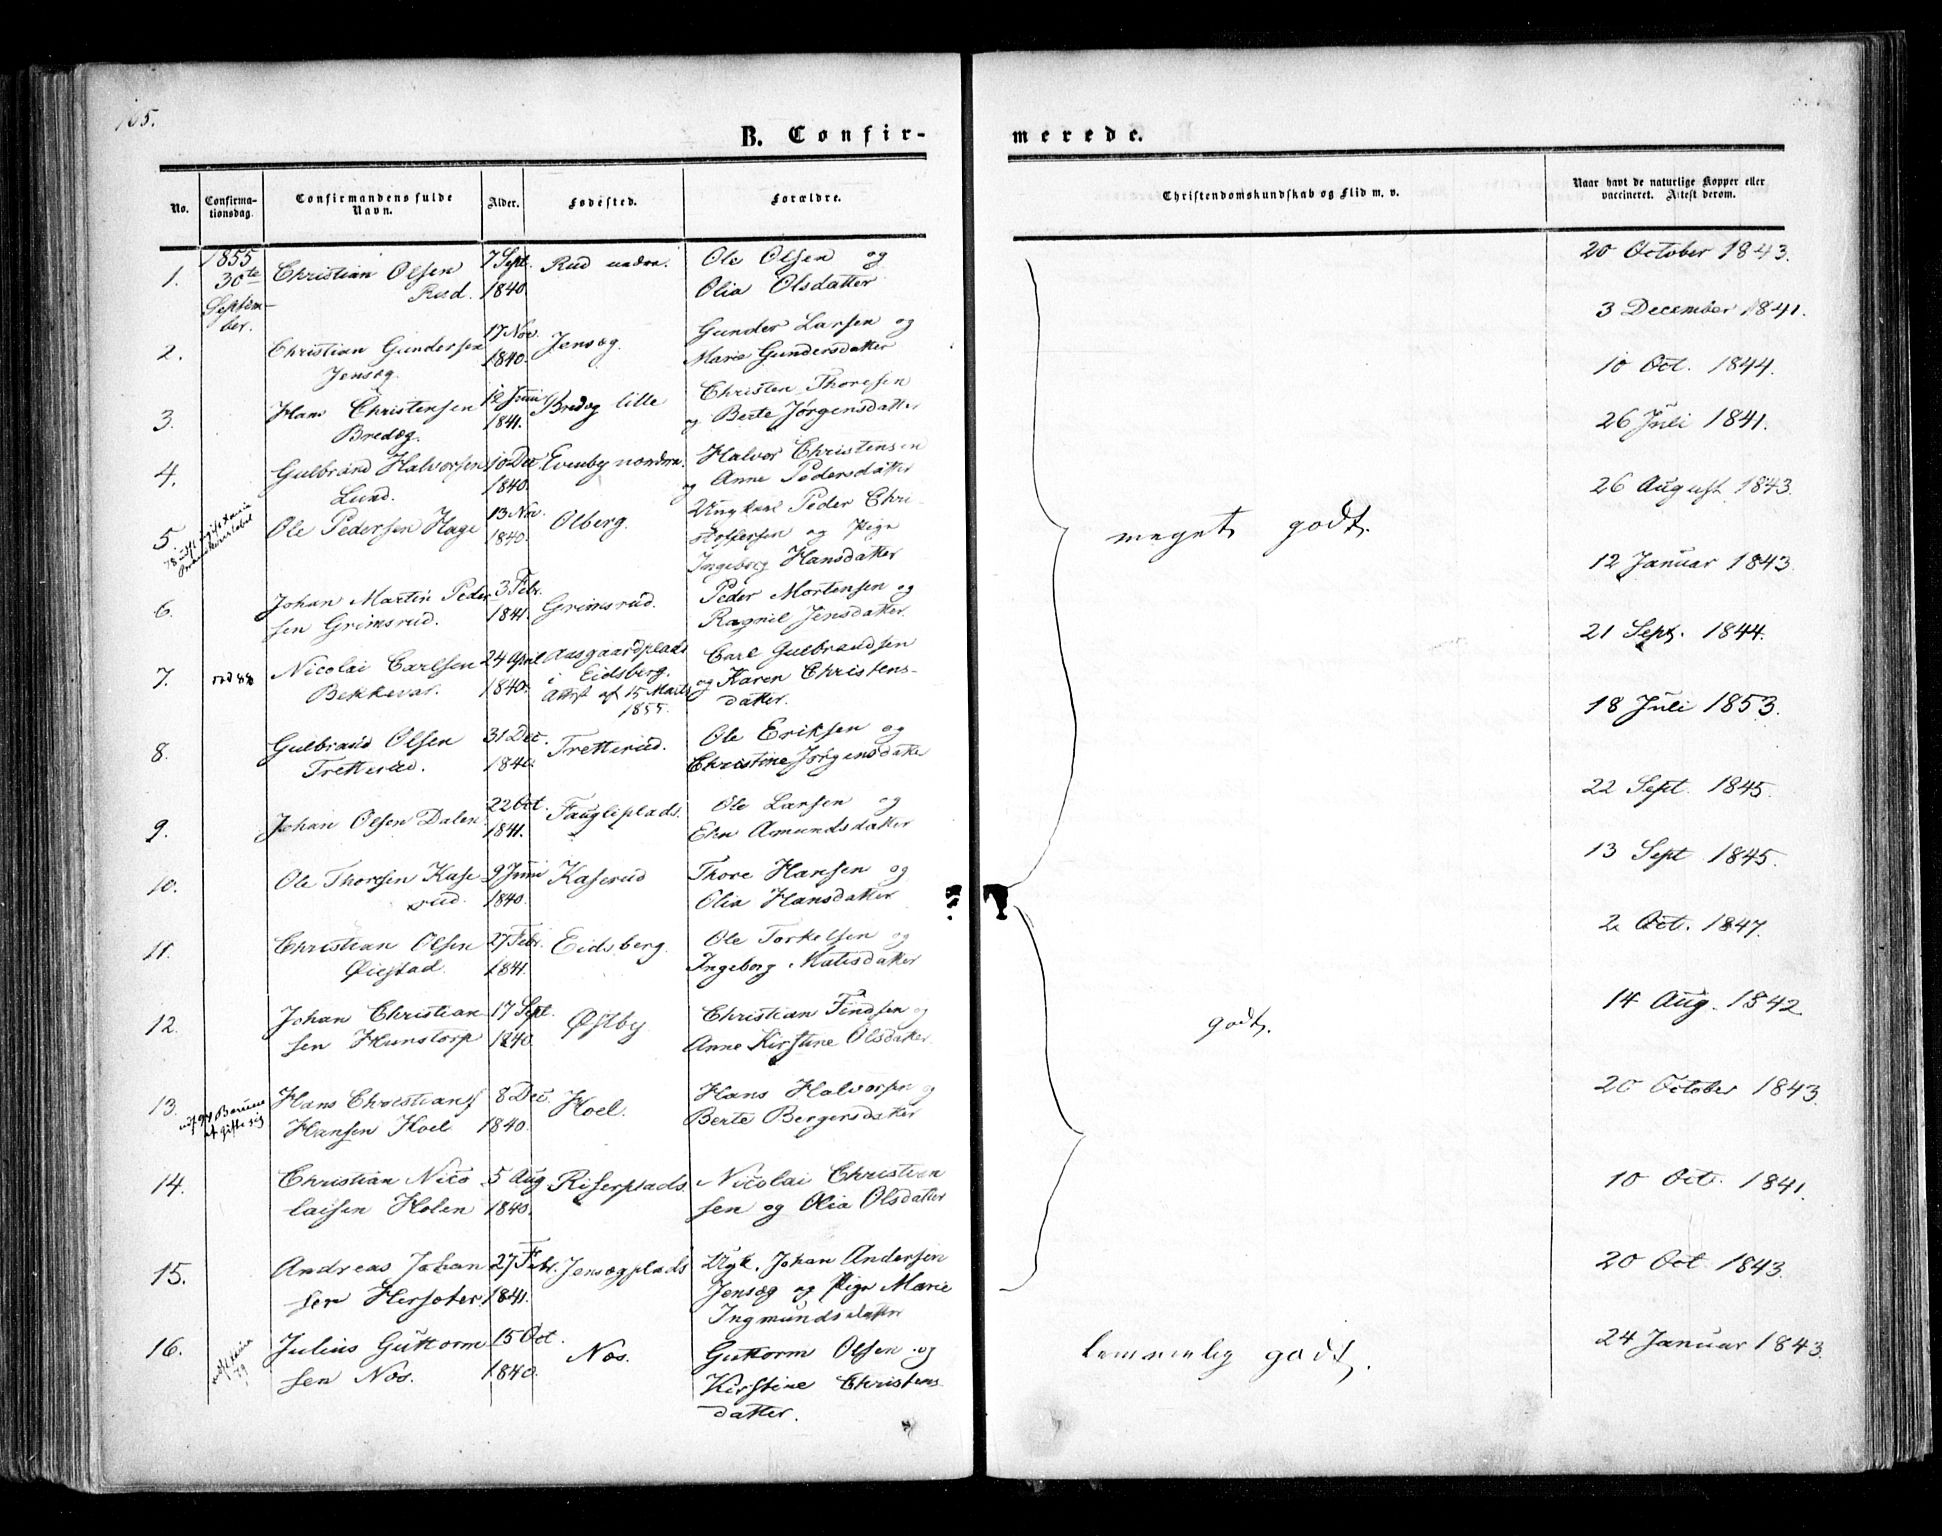 165.
B. Confir-
merede.
No.
Confirma-
tionsdag.
Confirmandens fulde
Navn.
Alder.
Fødested.
Forældre.
Christendomskundskab og Flid m. v.
Naar havt de naturlige Kopper eller
vaccineret. Attest derom.
1855
30te
Septem-
ber.
1. Christian Olsen 7 Sept. Rud nedre. Ole Olsen og 20 October 1843.
Rud. 1840 Olia Olsdatter
2. Christian Gundersen 17 Nov. Jensæg. Gunder Larsen og 3 December 1841.
Jensæg. 1840. Marie Gundersdatter
3. Hans Christensen 12 Juni Bredæg lille Christen Thoresen 10 Oct. 1844.
Bredæg. 1841. og Berte Jørgensdatter
4. Gulbrand Halvorsen 10 Dec Evenby nordre. Halvor Christensen 26 Juli 1841.
Lund. 1840. og Anne Pedersdatter
5 Ole Pedersen Hage 13 Nov. Olberg. Ungkarl Peder Chri- 26 August 1843.
1840. stoffersen og Pige
Ingeborg Hansdatter
meget godt.
6. Johan Martin Peder 3 Febr. Grimsrud. Peder Mortensen og 12 Januar 1843.
sen Grimsrud. 1841. Ragnil Jensdatter.
7. Nicolai Carlsen 24 April Aasgaardplads Carl Gulbrandsen 21 Sept. 1844.
Bekkevar. 1840. i Eidsberg. og Karen Christens-
Attest af 15 Marts datter.
1855.
8. Gulbrand Olsen 31 Dec. Tretterud. Ole Eriksen og 18 Juli 1853.
Tretterud. 1840. Christine Jørgensdatter
9. Johan Olsen Dalen 22 Oct. Daugliplads. Ole Larsen og 22 Sept. 1845.
1841. Amundsdatter
10. Ole Thoresen Kase 9 Juni Kaserud Thore Hansen og 13 Sept 1845.
rud. 1840. Olia Hansdatter
11. Christian Olsen 27 Febr. Eidsberg. Ole Torkelsen og 2 Oct. 1847.
Øiestad. 1841. Ingeborg Matisdatter
12. Johan Christian 17 Sept. Østby Christian Findsen og 14 Aug. 1842.
sen Hunstorp 1840 Anne Kirstine Olsdatter
godt.
13. Hans Christians 8 Dec. Hoel. Hans Halvorsen og 20 October 1843.
Hansen Hoel 1840. Berte Bergersdatter
14. Christian Nico 5 Aug Riserplads. Nicolai Christian 10 Oct. 1841.
laisen Holen 1840. sen og Olia Olsdatter
15. Andreas Johan 27 Febr. Jensægplads Ugk. Johan Andersen 20 Oct 1843.
sen Hersæter 1841. Jensæg og Pige Marie
Ingmundsdatter
16. Julius Guttorm 15 Oct. Nos. Guttorm Olsen og 24 Januar 1843.
sen Nos. 1840. Kirstine Christens
datter.
temmelig godt.